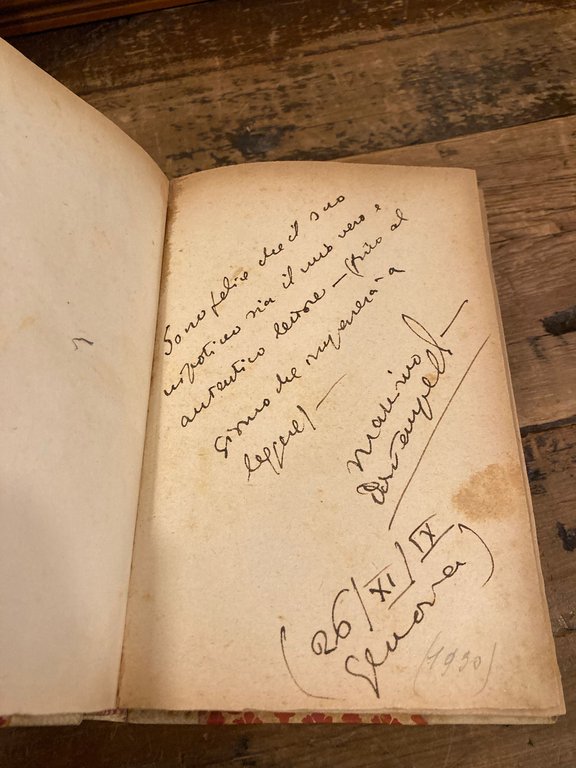 Sono felice che il suo
nipotino sia il mio vero e
autentico lettore – fino al
giorno che imparerà a
leggere! –
Massimo
Bontempelli
(26/XI/IX
Genova)
(1930)